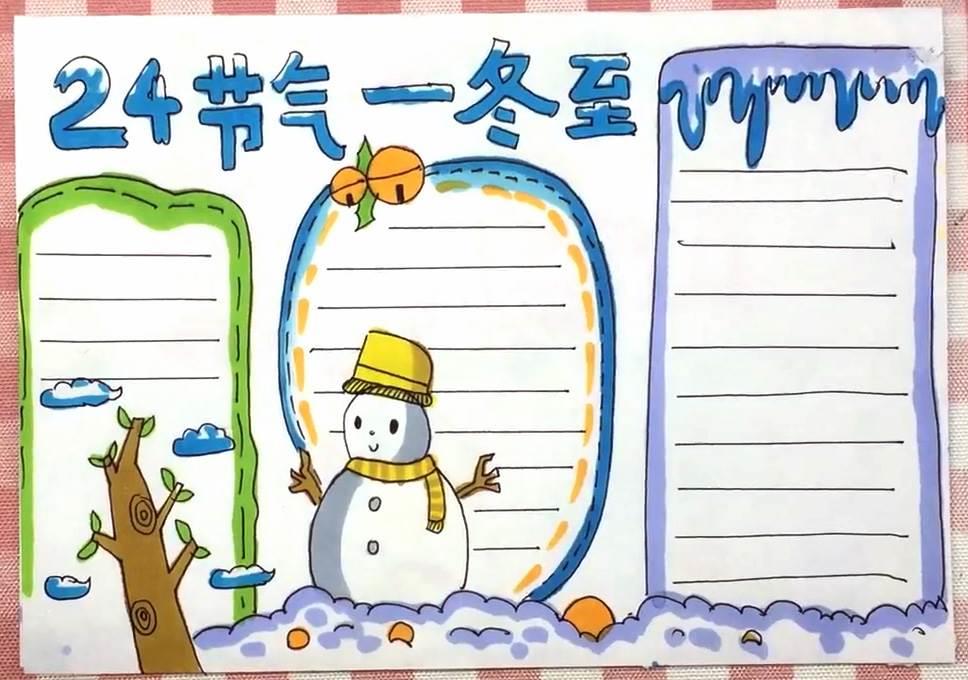 24节气一冬至